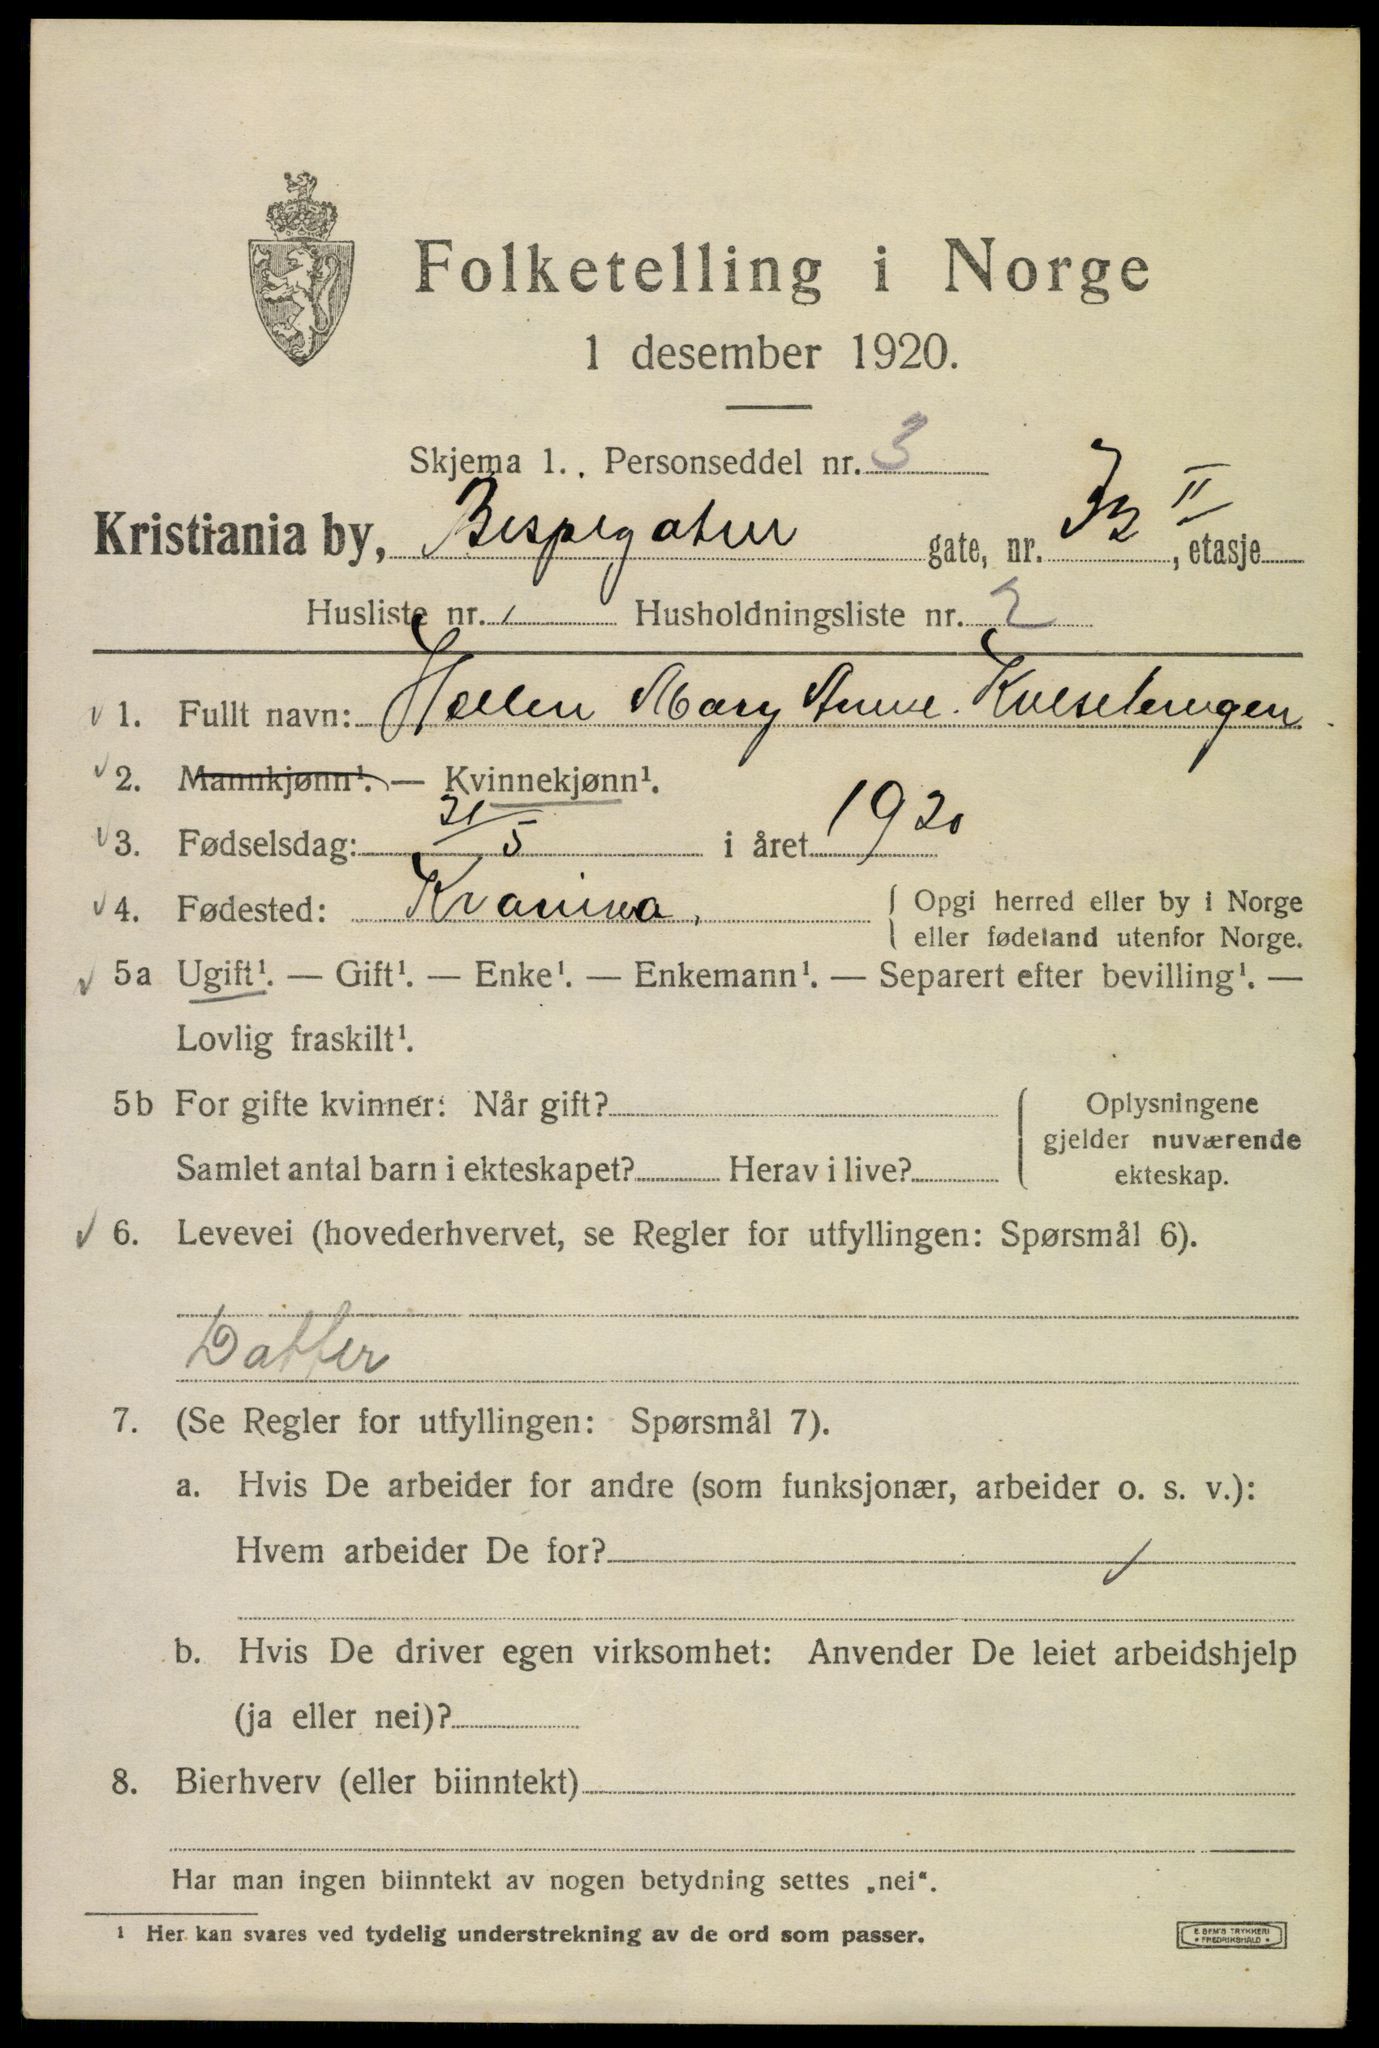 Folketelling i Norge
1 desember 1920.
Skjema 1. Personseddel nr. 3
Kristiania by, Bispegaten gate, nr. II, etasje
Husliste nr. 1 Husholdningsliste nr. 2
1. Fullt navn: Hellen Mary Anne
2. Mannkjønn¹. — Kvinnekjønn¹.
3. Fødselsdag: 21/5 i året 1920
4. Fødested: { Opgi herred eller by i Norge
eller fødeland utenfor Norge.
5a Ugift¹. — Gift¹. — Enke¹. — Enkemann¹. — Separert efter bevilling¹. —
Lovlig fraskilt¹.
5b For gifte kvinner: Når gift? { Oplysningene
gjelder nuværende
Samlet antal barn i ekteskapet? Herav i live? ekteskap.
6. Levevei (hovederhvervet, se Regler for utfyllingen: Spørsmål 6).
Datter
7. (Se Regler for utfyllingen: Spørsmål 7).
a. Hvis De arbeider for andre (som funksjonær, arbeider o. s. v.):
Hvem arbeider De for?
b. Hvis De driver egen virksomhet: Anvender De leiet arbeidshjelp
(ja eller nei)?
8. Bierhverv (eller biinntekt)
Har man ingen biinntekt av nogen betydning settes „nei“.
¹ Her kan svares ved tydelig understrekning av de ord som passer.
E SEM'S TRYKKERI
• FREDRIKSHALD •